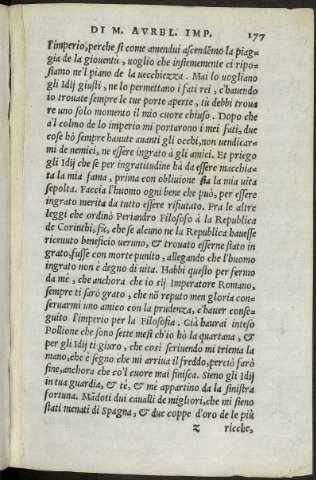 DI M. AVREL. IMP. 177
l'imperio, perche si come amendui ascendẽmo la piag-
gia de la giouentù, uoglio che insiememente ci ripo-
siamo ne'l piano de la uecchiezza. Mai lo uogliano
gli Idij giusti, ne lo permettano i fati rei, c'hauendo
io trouate sempre le tue porte aperte, tù debbi troua
re uno solo momento il mio cuore chiuso. Dopo che
a'l colmo de lo imperio mi portarono i mei fati, due
cose hò sempre hauute auanti gli occhi, non uendicar-
mi de nemici, ne essere ingrato á gli amici. Et priego
gli Idij che se per ingratitudine hà da essere macchia-
ta la mia fama, prima con obliuione sia la mia uita
sepolta. Faccia l'huomo ogni bene che può, per essere
ingrato merita da tutto essere rifiutato. Fra le altre
leggi che ordinò Periandro Filosofo á la Republica
de Corinthi, fù, che se alcuno ne la Republica hauesse
riceuuto beneficio ueruno, & trouato esserne stato in
grato, fusse con morte punito, allegando che l'huomo
ingrato non é degno di uita. Habbi questo per fermo
da mé, che anchora che io sij Imperatore Romano,
sempre ti sarò grato, che nõ reputo men gloria con-
seruarmi uno amico con la prudenza, c'hauer conse-
guito l'imperio per la Filosofia. Già haurai inteso
Pollione che sono sette mesi ch'io hò la quartana, &
per gli Idij ti giuro, che così scriuendo mi triema la
mano, che é segno che mi arriua il freddo, perciò farò
fine, anchora che co'l cuore mai finisca. Steno gli Idij
in tua guardia, & té, & mé appartino da la sinistra
fortuna. Mãdoti dui caualli de migliori, che mi sieno
stati menati di Spagna, & due coppe d'oro de le più
z ricche,